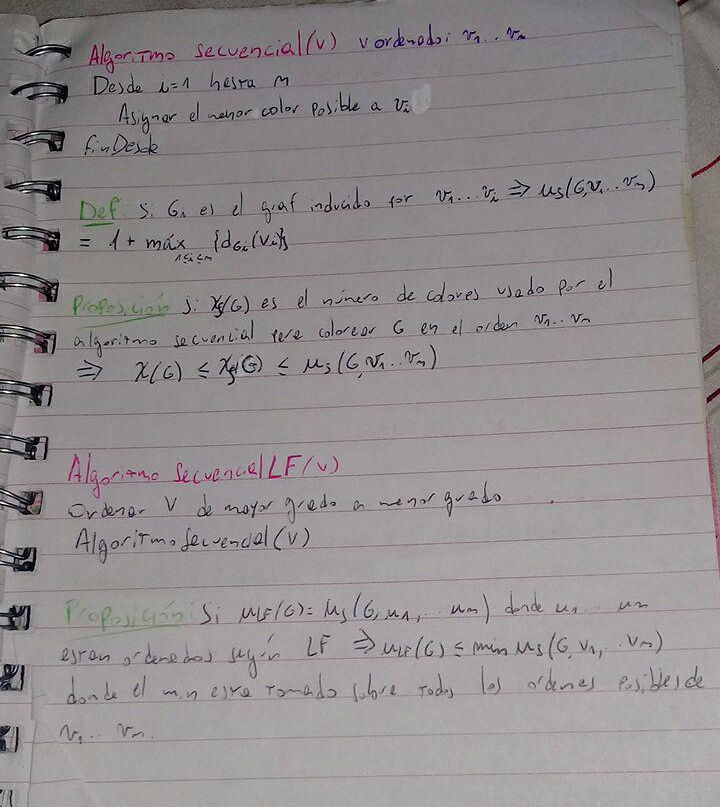 Algoritmo Secuencial(V) V ordenado: v₁..vₙ
Desde i=1 hasta n
Asignar el menor color posible a vᵢ
FinDesde
Def: Si Gᵢ es el graf inducido por v₁...vᵢ ⇒ μₛ(G,v₁..vₙ)
= 1 + máx {d_Gᵢ(vᵢ)}
1≤i≤n
Proposición: Si χₛ(G) es el número de colores usado por el
algoritmo secuencial para colorear G en el orden v₁..vₙ
⇒ χ(G) ≤ χₛ(G) ≤ μₛ(G,v₁..vₙ)
Algoritmo SecuencialLF(V)
Ordenar V de mayor grado a menor grado
AlgoritmoSecuencial(V)
Proposición: Si μLF(G)= μₛ(G,u₁,..uₙ) donde u₁..uₙ
estan ordenados según LF ⇒ μLF(G) ≤ min μₛ(G,v₁,..vₙ)
donde el min esta tomado sobre todos los ordenes posibles de
v₁..vₙ.